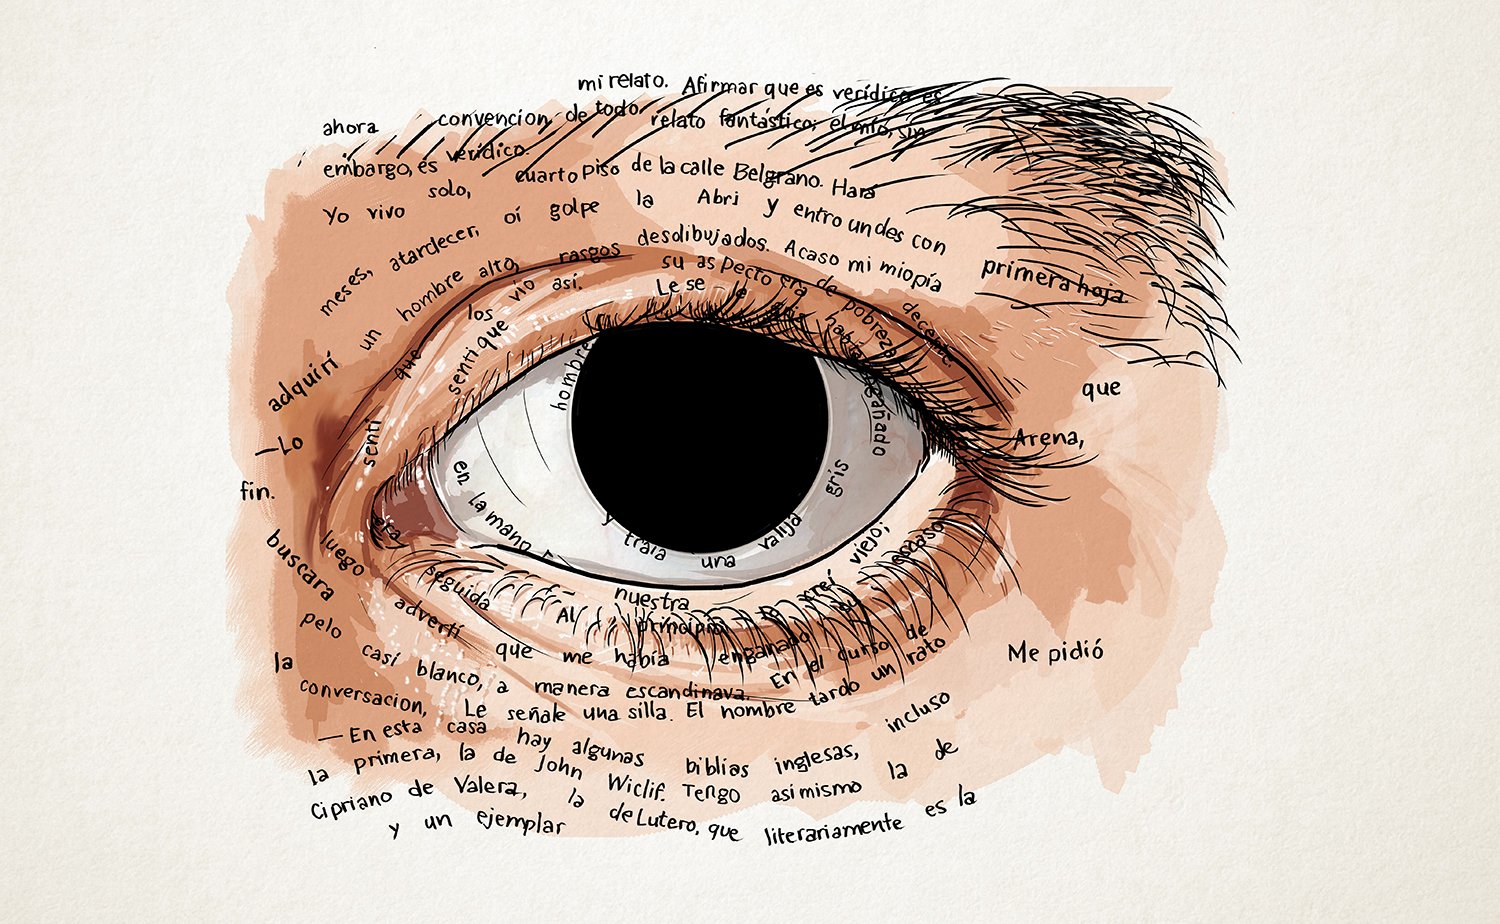 mi relato. Afirmar que es verídico es
ahora convencion de todo relato fantástico; el mío, sin
embargo, es verídico.
Yo vivo solo, cuarto piso de la calle Belgrano. Hará
meses, atardecer, oí golpe la Abrí y entro un des con
un hombre alto, rasgos desdibujados. Acaso mi miopía
primera hoja
adquirí que los vio así. su aspecto era de pobreza decente.
senti que Le se gris había
que
—Lo senti hombre engañado
Arena,
fin.
en la mano
y traía una valija gris
era
buscara luego seguida Al nuestra creí viejo;
principio escaso
pelo advertí que me había engañado
la casí blanco, a manera escandinava. En el curso de
Me pidió
conversacion, Le señale una silla. El hombre tardo un rato
—En esta casa hay algunas biblias inglesas, incluso
la primera, la de John Wiclif. Tengo asimismo la de
Cipriano de Valera, la de Lutero, que literariamente es la
y un ejemplar